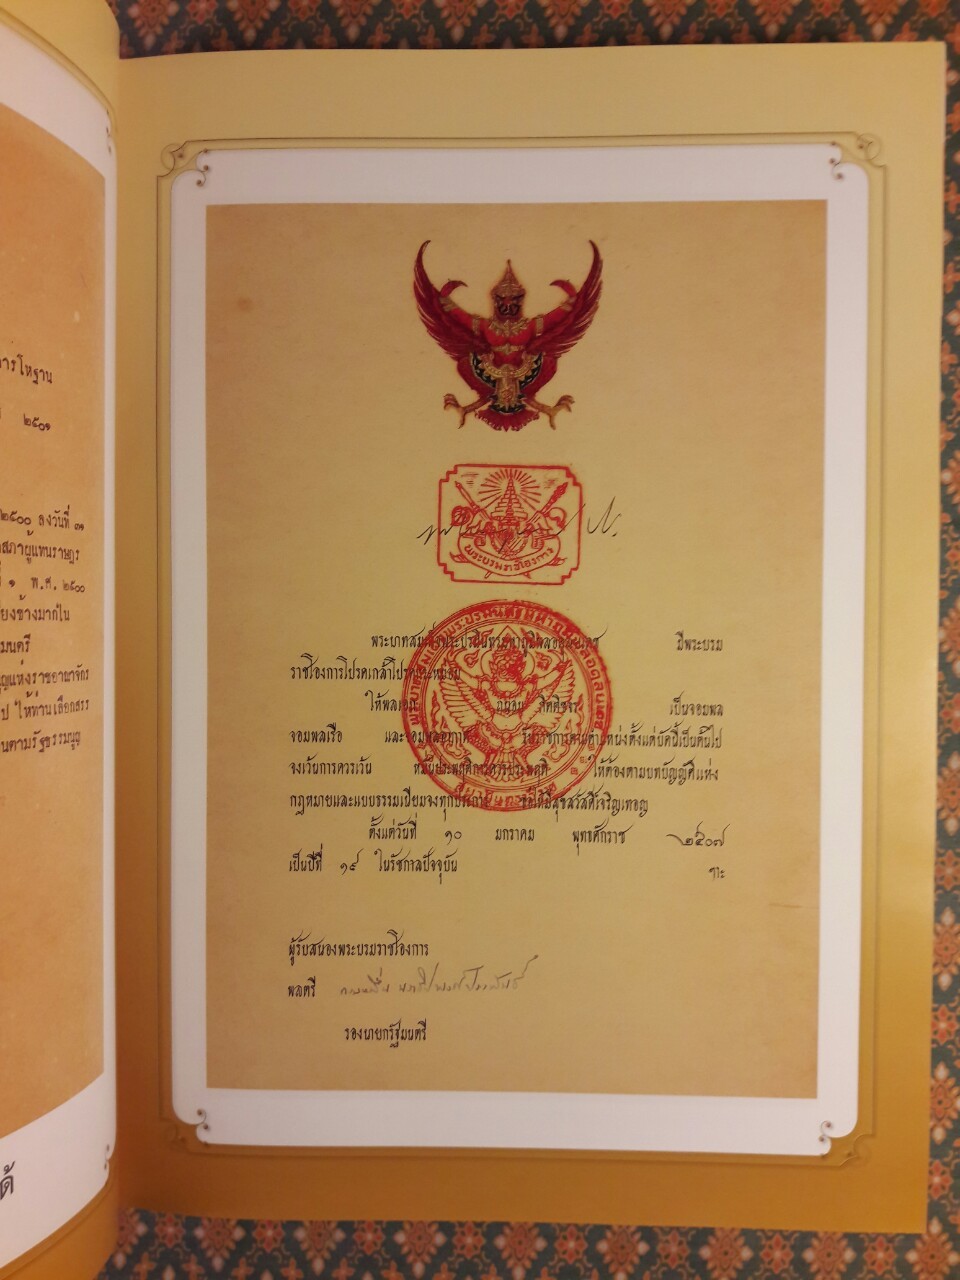 การโหฐาน
๒๕๐๑
๒๕๐๐ ลงวันที่ ๓๑
สภาผู้แทนราษฎร
ที่ ๑ พ.ศ. ๒๕๐๐
ยงข้างมากใน
มนตรี
ญแห่งราชอาณาจักร
ป ให้ท่านเลือกสรร
นตามรัฐธรรมนูญ
ด้
พระบรมราชโองการ
พระบาทสมเด็จพระปรมินทรมหาภูมิพลอดุลยเดช มีพระบรม
ราชโองการโปรดเกล้าโปรดกระหม่อม
ให้พลเอก ถนอม กิตติขจร เป็นจอมพล
จอมพลเรือ และจอมพลอากาศ รับราชการตามตำแหน่งตั้งแต่บัดนี้เป็นต้นไป
จงเว้นการควรเว้น หมั่นประพฤติการควรประพฤติ ให้ต้องตามบทบัญญัติแห่ง
กฎหมายและแบบธรรมเนียมจงทุกประการ ขอให้มีสุขสวัสดิ์เจริญเทอญ
ตั้งแต่วันที่ ๑๐ มกราคม พุทธศักราช ๒๕๐๗
เป็นปีที่ ๑๙ ในรัชกาลปัจจุบัน
ผู้รับสนองพระบรมราชโองการ
พลตรี
รองนายกรัฐมนตรี